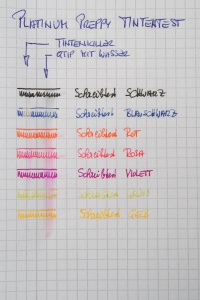 PLATINUM PREPPY TINTENTEST
TINTENKILLER
QTIP MIT WASSER
Schreibtest SCHWARZ
Schreibtest BLAUSCHWARZ
Schreibtest ROT
Schreibtest ROSA
Schreibtest VIOLETT
Schreibtest
Schreibtest GELB